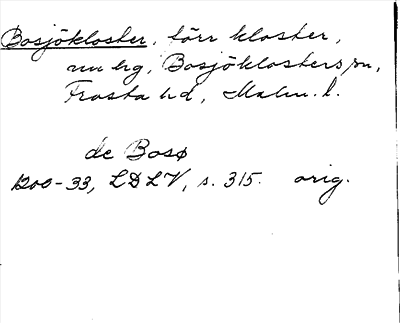 Bosjökloster, förr kloster,
nu hg, Bosjöklosters sn,
Frosta hd, Malm. l.
de Bosø
1200-33, LDLV, s. 315. orig.